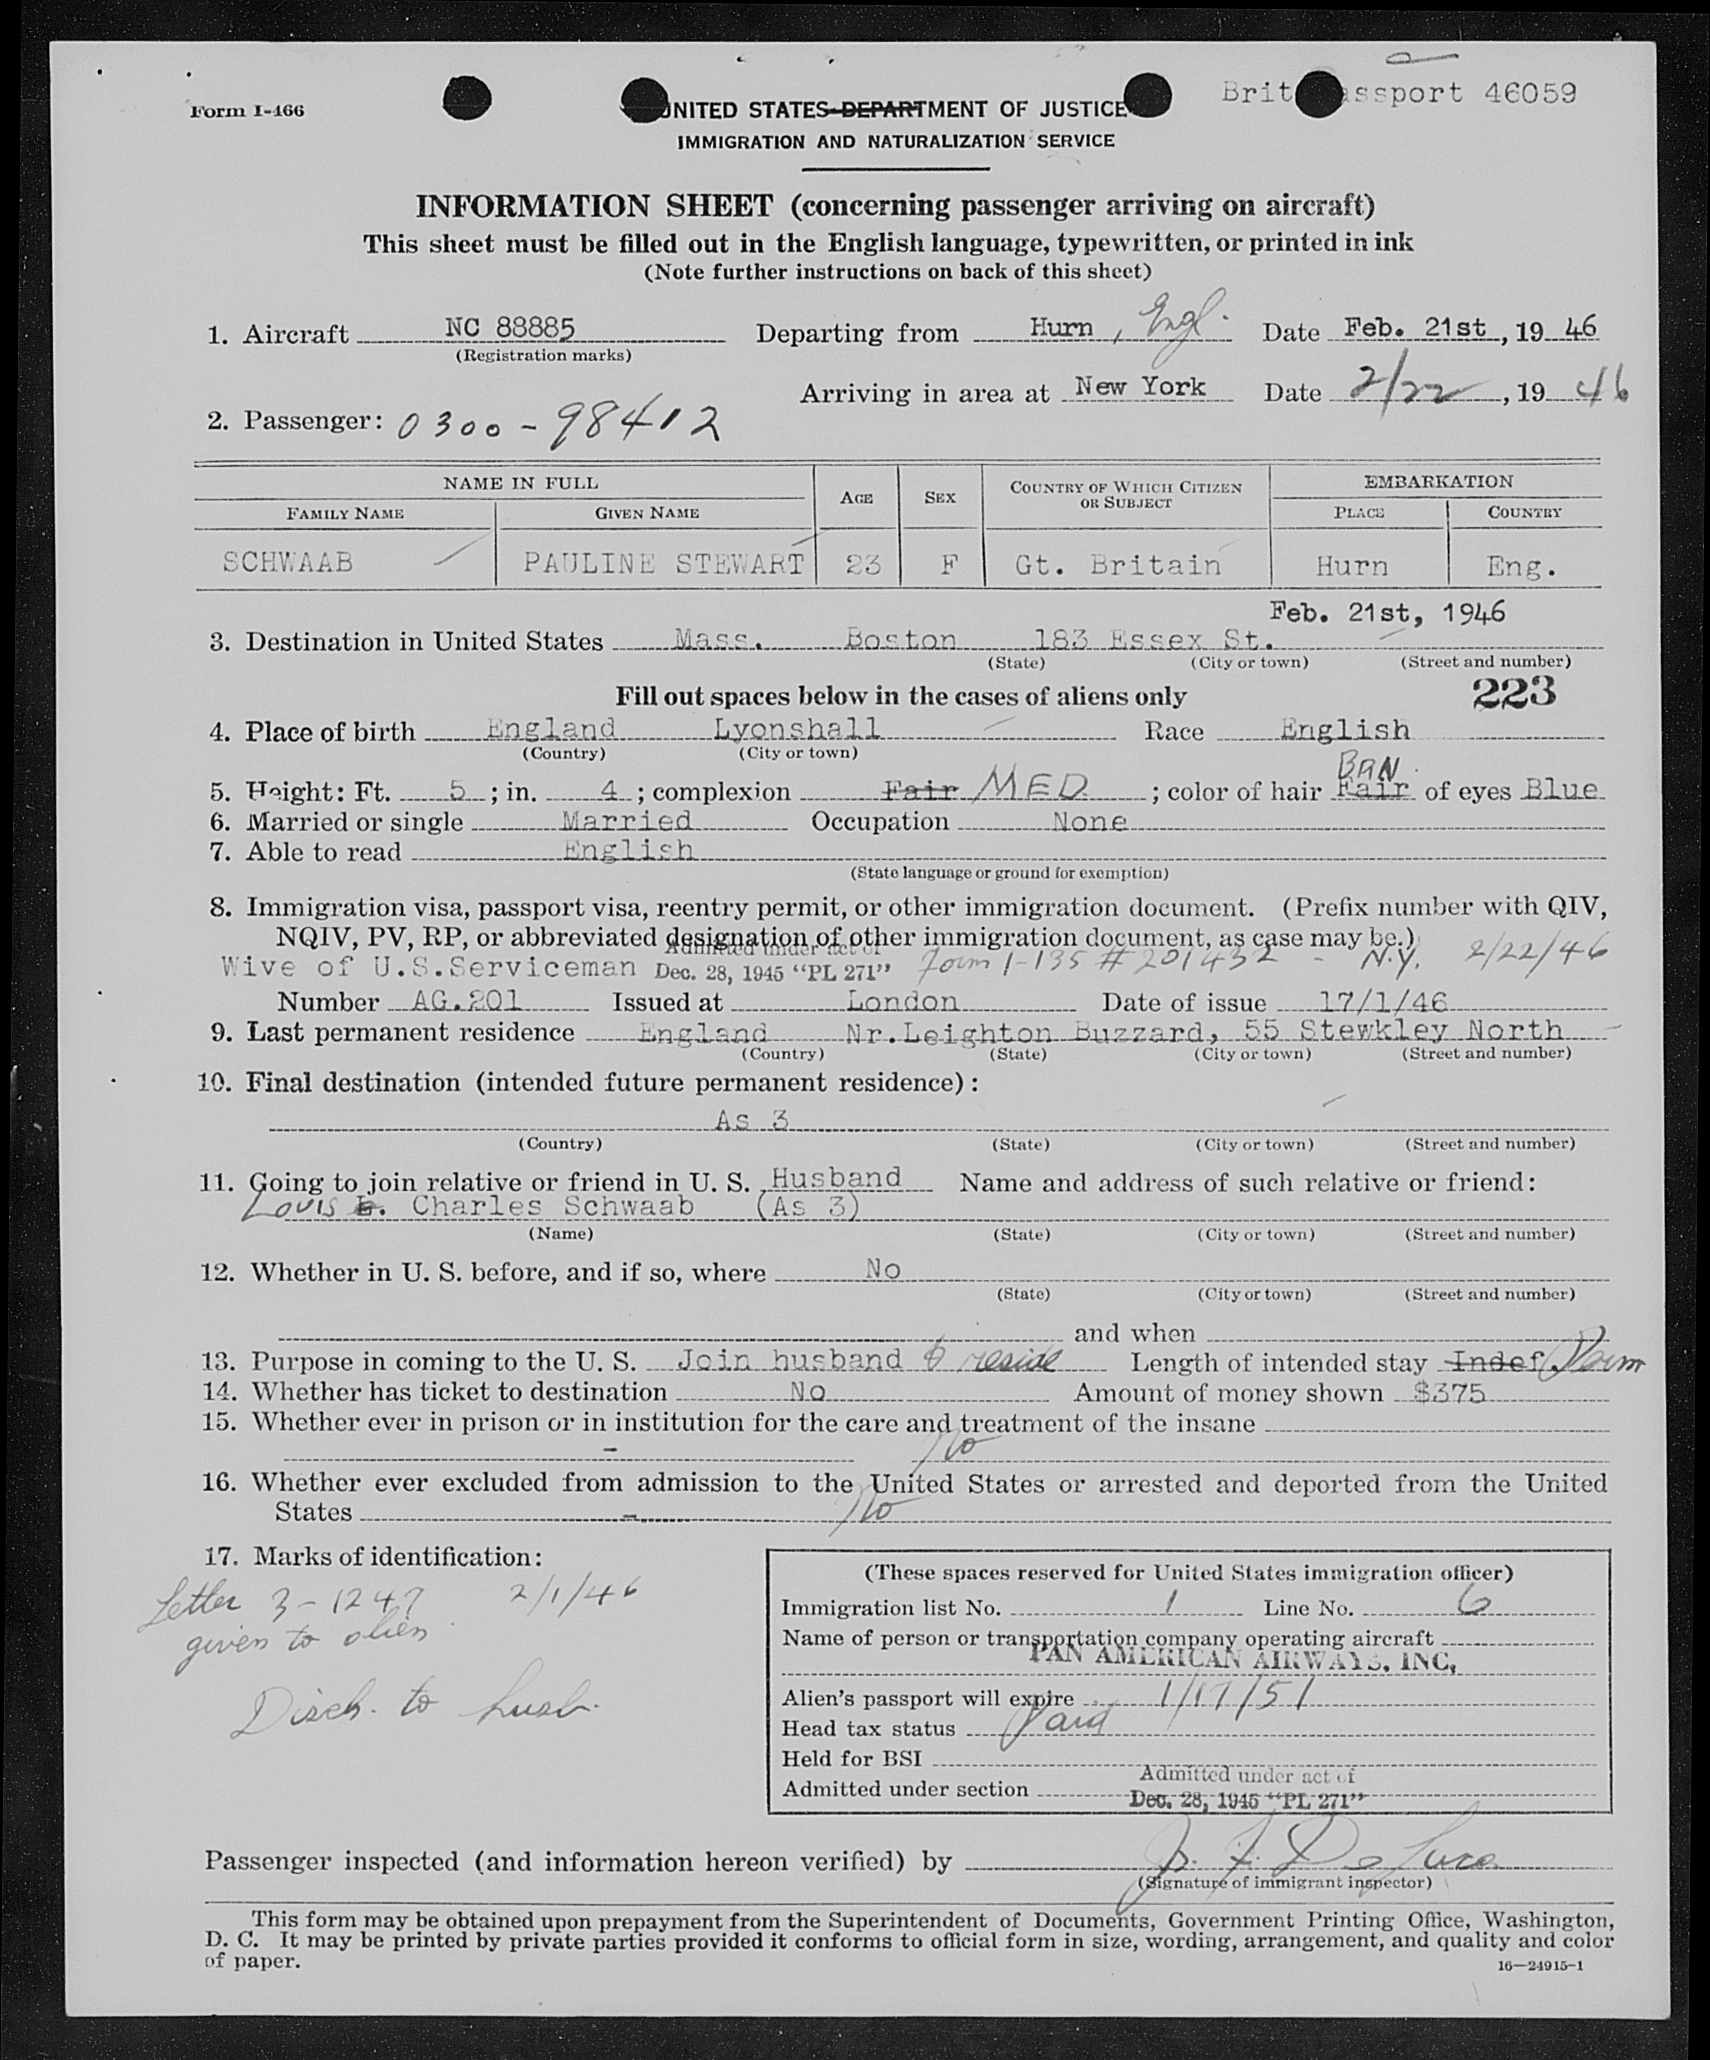 Brit Passport 46059
Form I-466
UNITED STATES DEPARTMENT OF JUSTICE
IMMIGRATION AND NATURALIZATION SERVICE
INFORMATION SHEET (concerning passenger arriving on aircraft)
This sheet must be filled out in the English language, typewritten, or printed in ink
(Note further instructions on back of this sheet)
1. Aircraft NC 88885 Departing from Hurn, Engl. Date Feb. 21st, 1946
(Registration marks)
Arriving in area at New York Date 2/22, 1946
2. Passenger: 0300-98412
NAME IN FULL AGE SEX COUNTRY OF WHICH CITIZEN OR SUBJECT EMBARKATION
FAMILY NAME GIVEN NAME PLACE COUNTRY
SCHWAAB PAULINE STEWART 23 F Gt. Britain Hurn Eng.
Feb. 21st, 1946
3. Destination in United States Mass. Boston 183 Essex St.
(State) (City or town) (Street and number)
Fill out spaces below in the cases of aliens only 223
4. Place of birth England Lyonshall Race English
(Country) (City or town)
BRN
5. Height: Ft. 5; in. 4; complexion Fair MED; color of hair Fair of eyes Blue
6. Married or single Married Occupation None
7. Able to read English
(State language or ground for exemption)
8. Immigration visa, passport visa, reentry permit, or other immigration document. (Prefix number with QIV,
NQIV, PV, RP, or abbreviated designation of other immigration document, as case may be.)
Admitted under act of
Wive of U.S.Serviceman Dec. 28, 1945 "PL 271" Form I-135 # 201432 - N.Y. 2/22/46
Number AG.201 Issued at London Date of issue 17/1/46
9. Last permanent residence England Nr.Leighton Buzzard, 55 Stewkley North
(Country) (State) (City or town) (Street and number)
10. Final destination (intended future permanent residence):
As 3
(Country) (State) (City or town) (Street and number)
11. Going to join relative or friend in U. S. Husband Name and address of such relative or friend:
Louis Charles Schwaab (As 3)
(Name) (State) (City or town) (Street and number)
12. Whether in U. S. before, and if so, where No
(State) (City or town) (Street and number)
and when
13. Purpose in coming to the U. S. Join husband to reside Length of intended stay Indef. Perm
14. Whether has ticket to destination No Amount of money shown $375
15. Whether ever in prison or in institution for the care and treatment of the insane
- No
16. Whether ever excluded from admission to the United States or arrested and deported from the United
States - No
17. Marks of identification:
Letter 3-1247 2/1/46
given to alien
Disch. to husb.
(These spaces reserved for United States immigration officer)
Immigration list No. 1 Line No. 6
Name of person or transportation company operating aircraft
PAN AMERICAN AIRWAYS, INC,
Alien's passport will expire 1/17/51
Head tax status Paid
Held for BSI
Admitted under act of
Admitted under section
Dec. 28, 1945 "PL 271"
Passenger inspected (and information hereon verified) by J. F. De Luca
(Signature of immigrant inspector)
This form may be obtained upon prepayment from the Superintendent of Documents, Government Printing Office, Washington,
D. C. It may be printed by private parties provided it conforms to official form in size, wording, arrangement, and quality and color
of paper.
16—24915-1